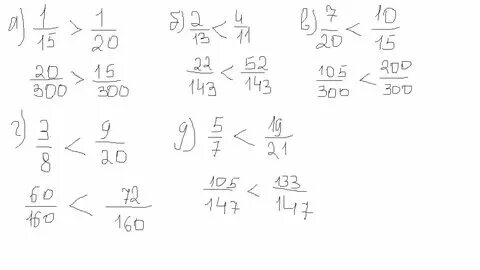 а) 1/15 > 1/20
20/300 > 15/300
б) 2/13 < 4/11
22/143 < 52/143
в) 7/20 < 10/15
105/300 < 200/300
г) 3/8 < 9/20
60/160 < 72/160
д) 5/7 < 19/21
105/147 < 133/147